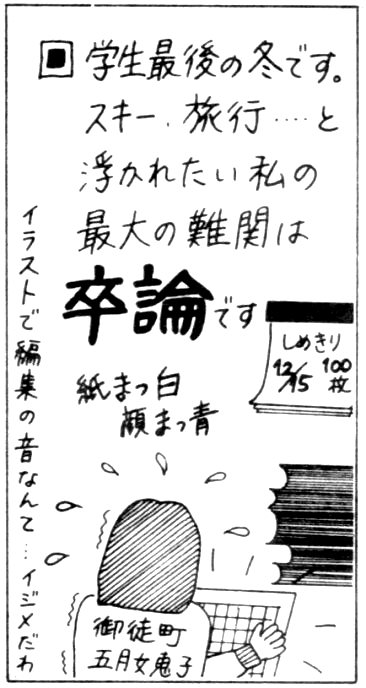 学生最後の冬です。
スキー、旅行‥‥と
浮かれたい私の
最大の難関は
卒論です
紙まっ白
顔まっ青
しめきり
12/15 100枚
イラストで編集の音なんて…イジメだわ
御徒町
五月女恵子